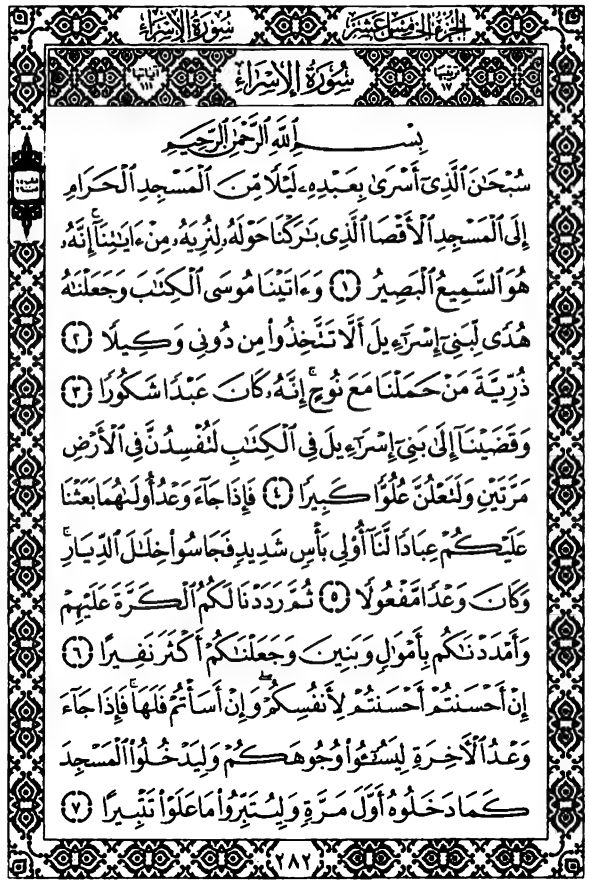 سُورَةُ الإِسْرَاءِ الجُزْءُ الخَامِسَ عَشَرَ
ترتيبها ١٧ سُورَةُ الإِسْرَاءِ آياتها ١١١
بِسْمِ ٱللَّهِ ٱلرَّحْمَٰنِ ٱلرَّحِيمِ
سُبْحَٰنَ ٱلَّذِىٓ أَسْرَىٰ بِعَبْدِهِۦ لَيْلًا مِّنَ ٱلْمَسْجِدِ ٱلْحَرَامِ
إِلَى ٱلْمَسْجِدِ ٱلْأَقْصَا ٱلَّذِى بَٰرَكْنَا حَوْلَهُۥ لِنُرِيَهُۥ مِنْ ءَايَٰتِنَآ ۚ إِنَّهُۥ
هُوَ ٱلسَّمِيعُ ٱلْبَصِيرُ ١ وَءَاتَيْنَا مُوسَى ٱلْكِتَٰبَ وَجَعَلْنَٰهُ
هُدًى لِّبَنِىٓ إِسْرَٰٓءِيلَ أَلَّا تَتَّخِذُوا۟ مِن دُونِى وَكِيلًا ٢
ذُرِّيَّةَ مَنْ حَمَلْنَا مَعَ نُوحٍ ۚ إِنَّهُۥ كَانَ عَبْدًا شَكُورًا ٣
وَقَضَيْنَآ إِلَىٰ بَنِىٓ إِسْرَٰٓءِيلَ فِى ٱلْكِتَٰبِ لَتُفْسِدُنَّ فِى ٱلْأَرْضِ
مَرَّتَيْنِ وَلَتَعْلُنَّ عُلُوًّا كَبِيرًا ٤ فَإِذَا جَآءَ وَعْدُ أُولَىٰهُمَا بَعَثْنَا
عَلَيْكُمْ عِبَادًا لَّنَآ أُو۟لِى بَأْسٍ شَدِيدٍ فَجَاسُوا۟ خِلَٰلَ ٱلدِّيَارِ ۚ
وَكَانَ وَعْدًا مَّفْعُولًا ٥ ثُمَّ رَدَدْنَا لَكُمُ ٱلْكَرَّةَ عَلَيْهِمْ
وَأَمْدَدْنَٰكُم بِأَمْوَٰلٍ وَبَنِينَ وَجَعَلْنَٰكُمْ أَكْثَرَ نَفِيرًا ٦
إِنْ أَحْسَنتُمْ أَحْسَنتُمْ لِأَنفُسِكُمْ ۖ وَإِنْ أَسَأْتُمْ فَلَهَا ۚ فَإِذَا جَآءَ
وَعْدُ ٱلْـَٔاخِرَةِ لِيَسُۥٓـُٔوا۟ وُجُوهَكُمْ وَلِيَدْخُلُوا۟ ٱلْمَسْجِدَ
كَمَا دَخَلُوهُ أَوَّلَ مَرَّةٍ وَلِيُتَبِّرُوا۟ مَا عَلَوْا۟ تَتْبِيرًا ٧
٢٨٢